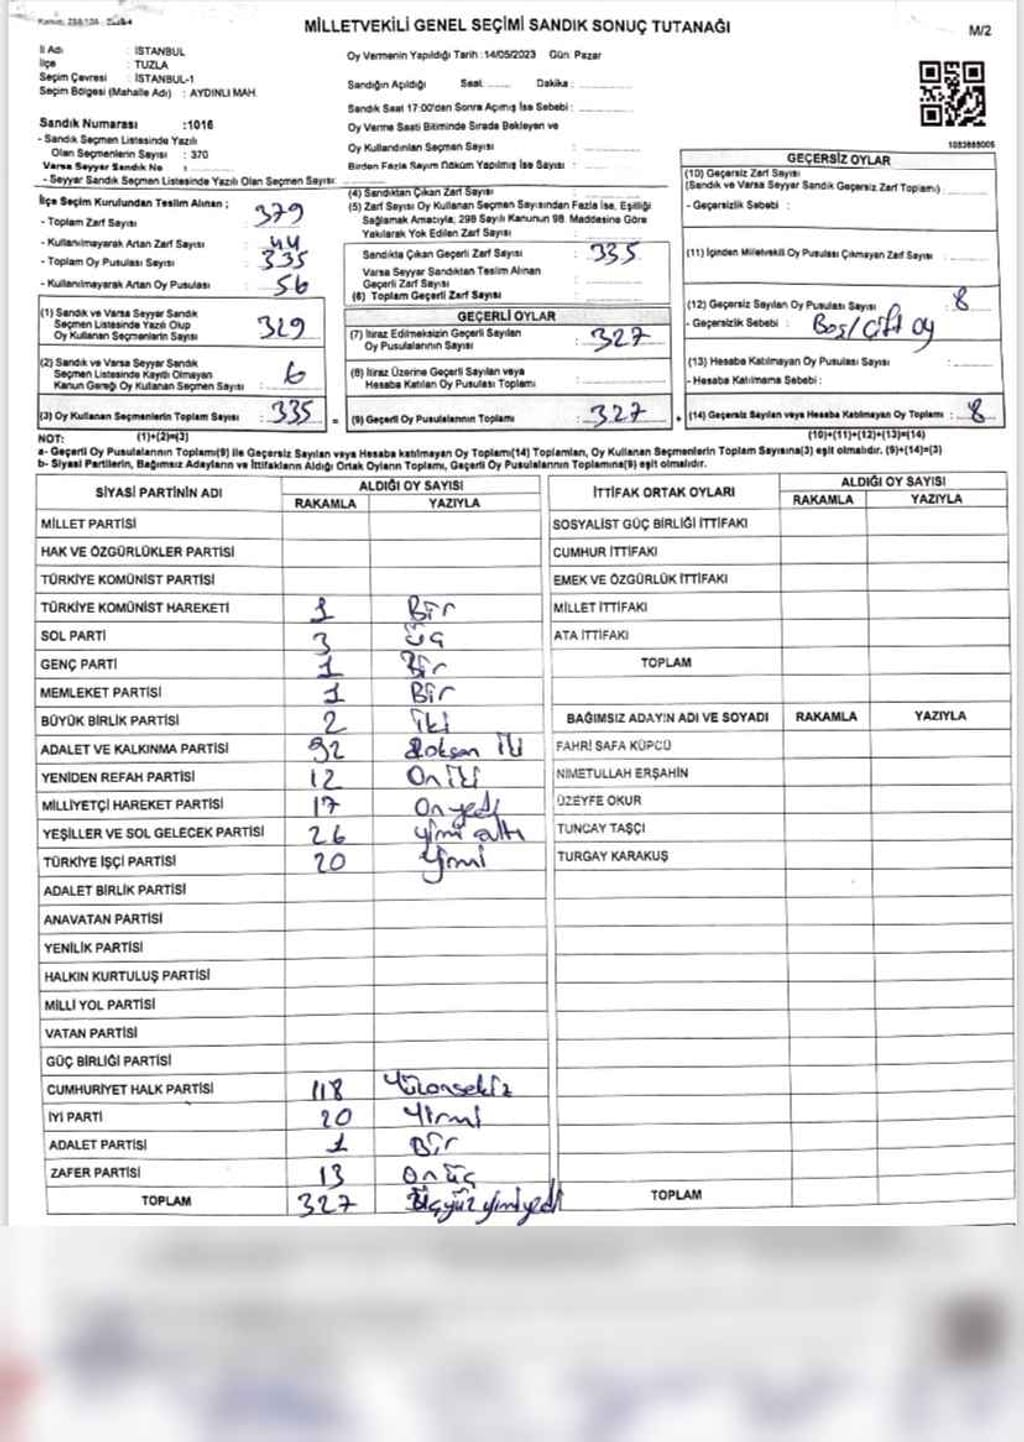 MİLLETVEKİLİ GENEL SEÇİMİ SANDIK SONUÇ TUTANAĞI
M/2
İl Adı : İSTANBUL
İlçe : TUZLA
Seçim Çevresi : İSTANBUL-1
Seçim Bölgesi (Mahalle Adı) : AYDINLI MAH.
Oy Vermenin Yapıldığı Tarih :14/05/2023 Gün: Pazar
Sandığın Açıldığı Saat ........ Dakika : ............
Sandık Saat 17:00'den Sonra Açımış İse Sebebi : ............
Sandık Numarası :1016
- Sandık Seçmen Listesinde Yazılı
Olan Seçmenlerin Sayısı : 370
Varsa Seyyar Sandık No : ........
- Seyyar Sandık Seçmen Listesinde Yazılı Olan Seçmen Sayısı: ............
Oy Verme Saati Bitiminde Sırada Bekleyen ve
Oy Kullandırılan Seçmen Sayısı : ............
Birden Fazla Sayım Döküm Yapılmış İse Sayısı : ............
1083868005
İlçe Seçim Kurulundan Teslim Alınan ;
- Toplam Zarf Sayısı : 379
- Kullanılmayarak Artan Zarf Sayısı : 44
- Toplam Oy Pusulası Sayısı : 335
- Kullanılmayarak Artan Oy Pusulası : 56
(1) Sandık ve Varsa Seyyar Sandık
Seçmen Listesinde Yazılı Olup
Oy Kullanan Seçmenlerin Sayısı : 329
(2) Sandık ve Varsa Seyyar Sandık
Seçmen Listesinde Kayıtlı Olmayan
Kanun Gereği Oy Kullanan Seçmen Sayısı : 6
(3) Oy Kullanan Seçmenlerin Toplam Sayısı : 335 =
(4) Sandıktan Çıkan Zarf Sayısı : ............
(5) Zarf Sayısı Oy Kullanan Seçmen Sayısından Fazla İse, Eşitliği
Sağlamak Amacıyla; 298 Sayılı Kanunun 98. Maddesine Göre
Yakılarak Yok Edilen Zarf Sayısı : ............
Sandıkta Çıkan Geçerli Zarf Sayısı : 335
Varsa Seyyar Sandıktan Teslim Alınan
Geçerli Zarf Sayısı : ............
(6) Toplam Geçerli Zarf Sayısı : ............
GEÇERLİ OYLAR
(7) İtiraz Edilmeksizin Geçerli Sayılan
Oy Pusulalarının Sayısı : 327
(8) İtiraz Üzerine Geçerli Sayılan veya
Hesaba Katılan Oy Pusulası Toplamı : ............
(9) Geçerli Oy Pusulalarının Toplamı : 327 +
GEÇERSİZ OYLAR
(10) Geçersiz Zarf Sayısı
(Sandık ve Varsa Seyyar Sandık Geçersiz Zarf Toplamı) : ............
- Geçersizlik Sebebi :
(11) İçinden Milletvekili Oy Pusulası Çıkmayan Zarf Sayısı : ............
(12) Geçersiz Sayılan Oy Pusulası Sayısı : 8
- Geçersizlik Sebebi : Boş/Çift oy
(13) Hesaba Katılmayan Oy Pusulası Sayısı : ............
- Hesaba Katılmama Sebebi :
(14) Geçersiz Sayılan veya Hesaba Katılmayan Oy Toplamı : 8
NOT: (1)+(2)=(3) (10)+(11)+(12)+(13)=(14)
a- Geçerli Oy Pusulalarının Toplamı(9) ile Geçersiz Sayılan veya Hesaba katılmayan Oy Toplamı(14) Toplamları, Oy Kullanan Seçmenlerin Toplam Sayısına(3) eşit olmalıdır. (9)+(14)=(3)
b- Siyasi Partilerin, Bağımsız Adayların ve İttifakların Aldığı Ortak Oyların Toplamı, Geçerli Oy Pusulalarının Toplamına(9) eşit olmalıdır.
SİYASİ PARTİNİN ADI ALDIĞI OY SAYISI
RAKAMLA YAZIYLA
MİLLET PARTİSİ
HAK VE ÖZGÜRLÜKLER PARTİSİ
TÜRKİYE KOMÜNİST PARTİSİ
TÜRKİYE KOMÜNİST HAREKETİ 1 Bir
SOL PARTİ 3 Üç
GENÇ PARTİ 1 Bir
MEMLEKET PARTİSİ 1 Bir
BÜYÜK BİRLİK PARTİSİ 2 İki
ADALET VE KALKINMA PARTİSİ 92 Doksan İki
YENİDEN REFAH PARTİSİ 12 On iki
MİLLİYETÇİ HAREKET PARTİSİ 17 Onyedi
YEŞİLLER VE SOL GELECEK PARTİSİ 26 yirmi altı
TÜRKİYE İŞÇİ PARTİSİ 20 yirmi
ADALET BİRLİK PARTİSİ
ANAVATAN PARTİSİ
YENİLİK PARTİSİ
HALKIN KURTULUŞ PARTİSİ
MİLLİ YOL PARTİSİ
VATAN PARTİSİ
GÜÇ BİRLİĞİ PARTİSİ
CUMHURİYET HALK PARTİSİ 118 Yüzonsekiz
İYİ PARTİ 20 Yirmi
ADALET PARTİSİ 1 Bir
ZAFER PARTİSİ 13 Onüç
TOPLAM 327 Üçyüzyirmiyedi
İTTİFAK ORTAK OYLARI ALDIĞI OY SAYISI
RAKAMLA YAZIYLA
SOSYALİST GÜÇ BİRLİĞİ İTTİFAKI
CUMHUR İTTİFAKI
EMEK VE ÖZGÜRLÜK İTTİFAKI
MİLLET İTTİFAKI
ATA İTTİFAKI
TOPLAM
BAĞIMSIZ ADAYIN ADI VE SOYADI RAKAMLA YAZIYLA
FAHRİ SAFA KÜPCÜ
NİMETULLAH ERŞAHİN
ÜZEYFE OKUR
TUNCAY TAŞÇI
TURGAY KARAKUŞ
TOPLAM